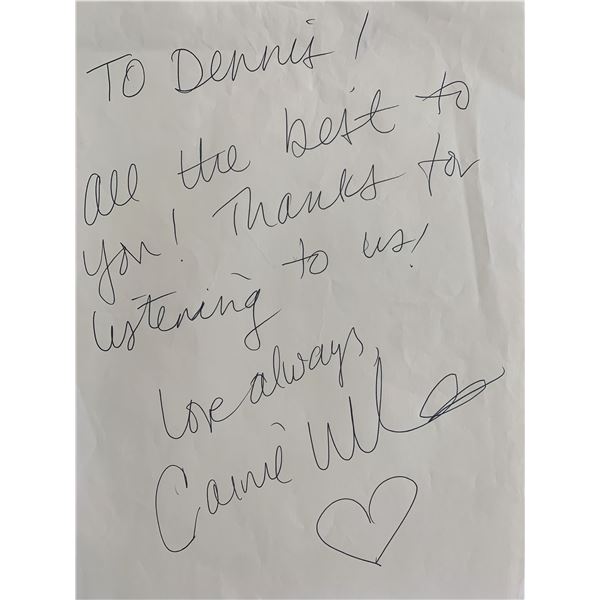 To Dennis!
all the best to
you! Thanks for
listening to us!
Love always,
Carnie